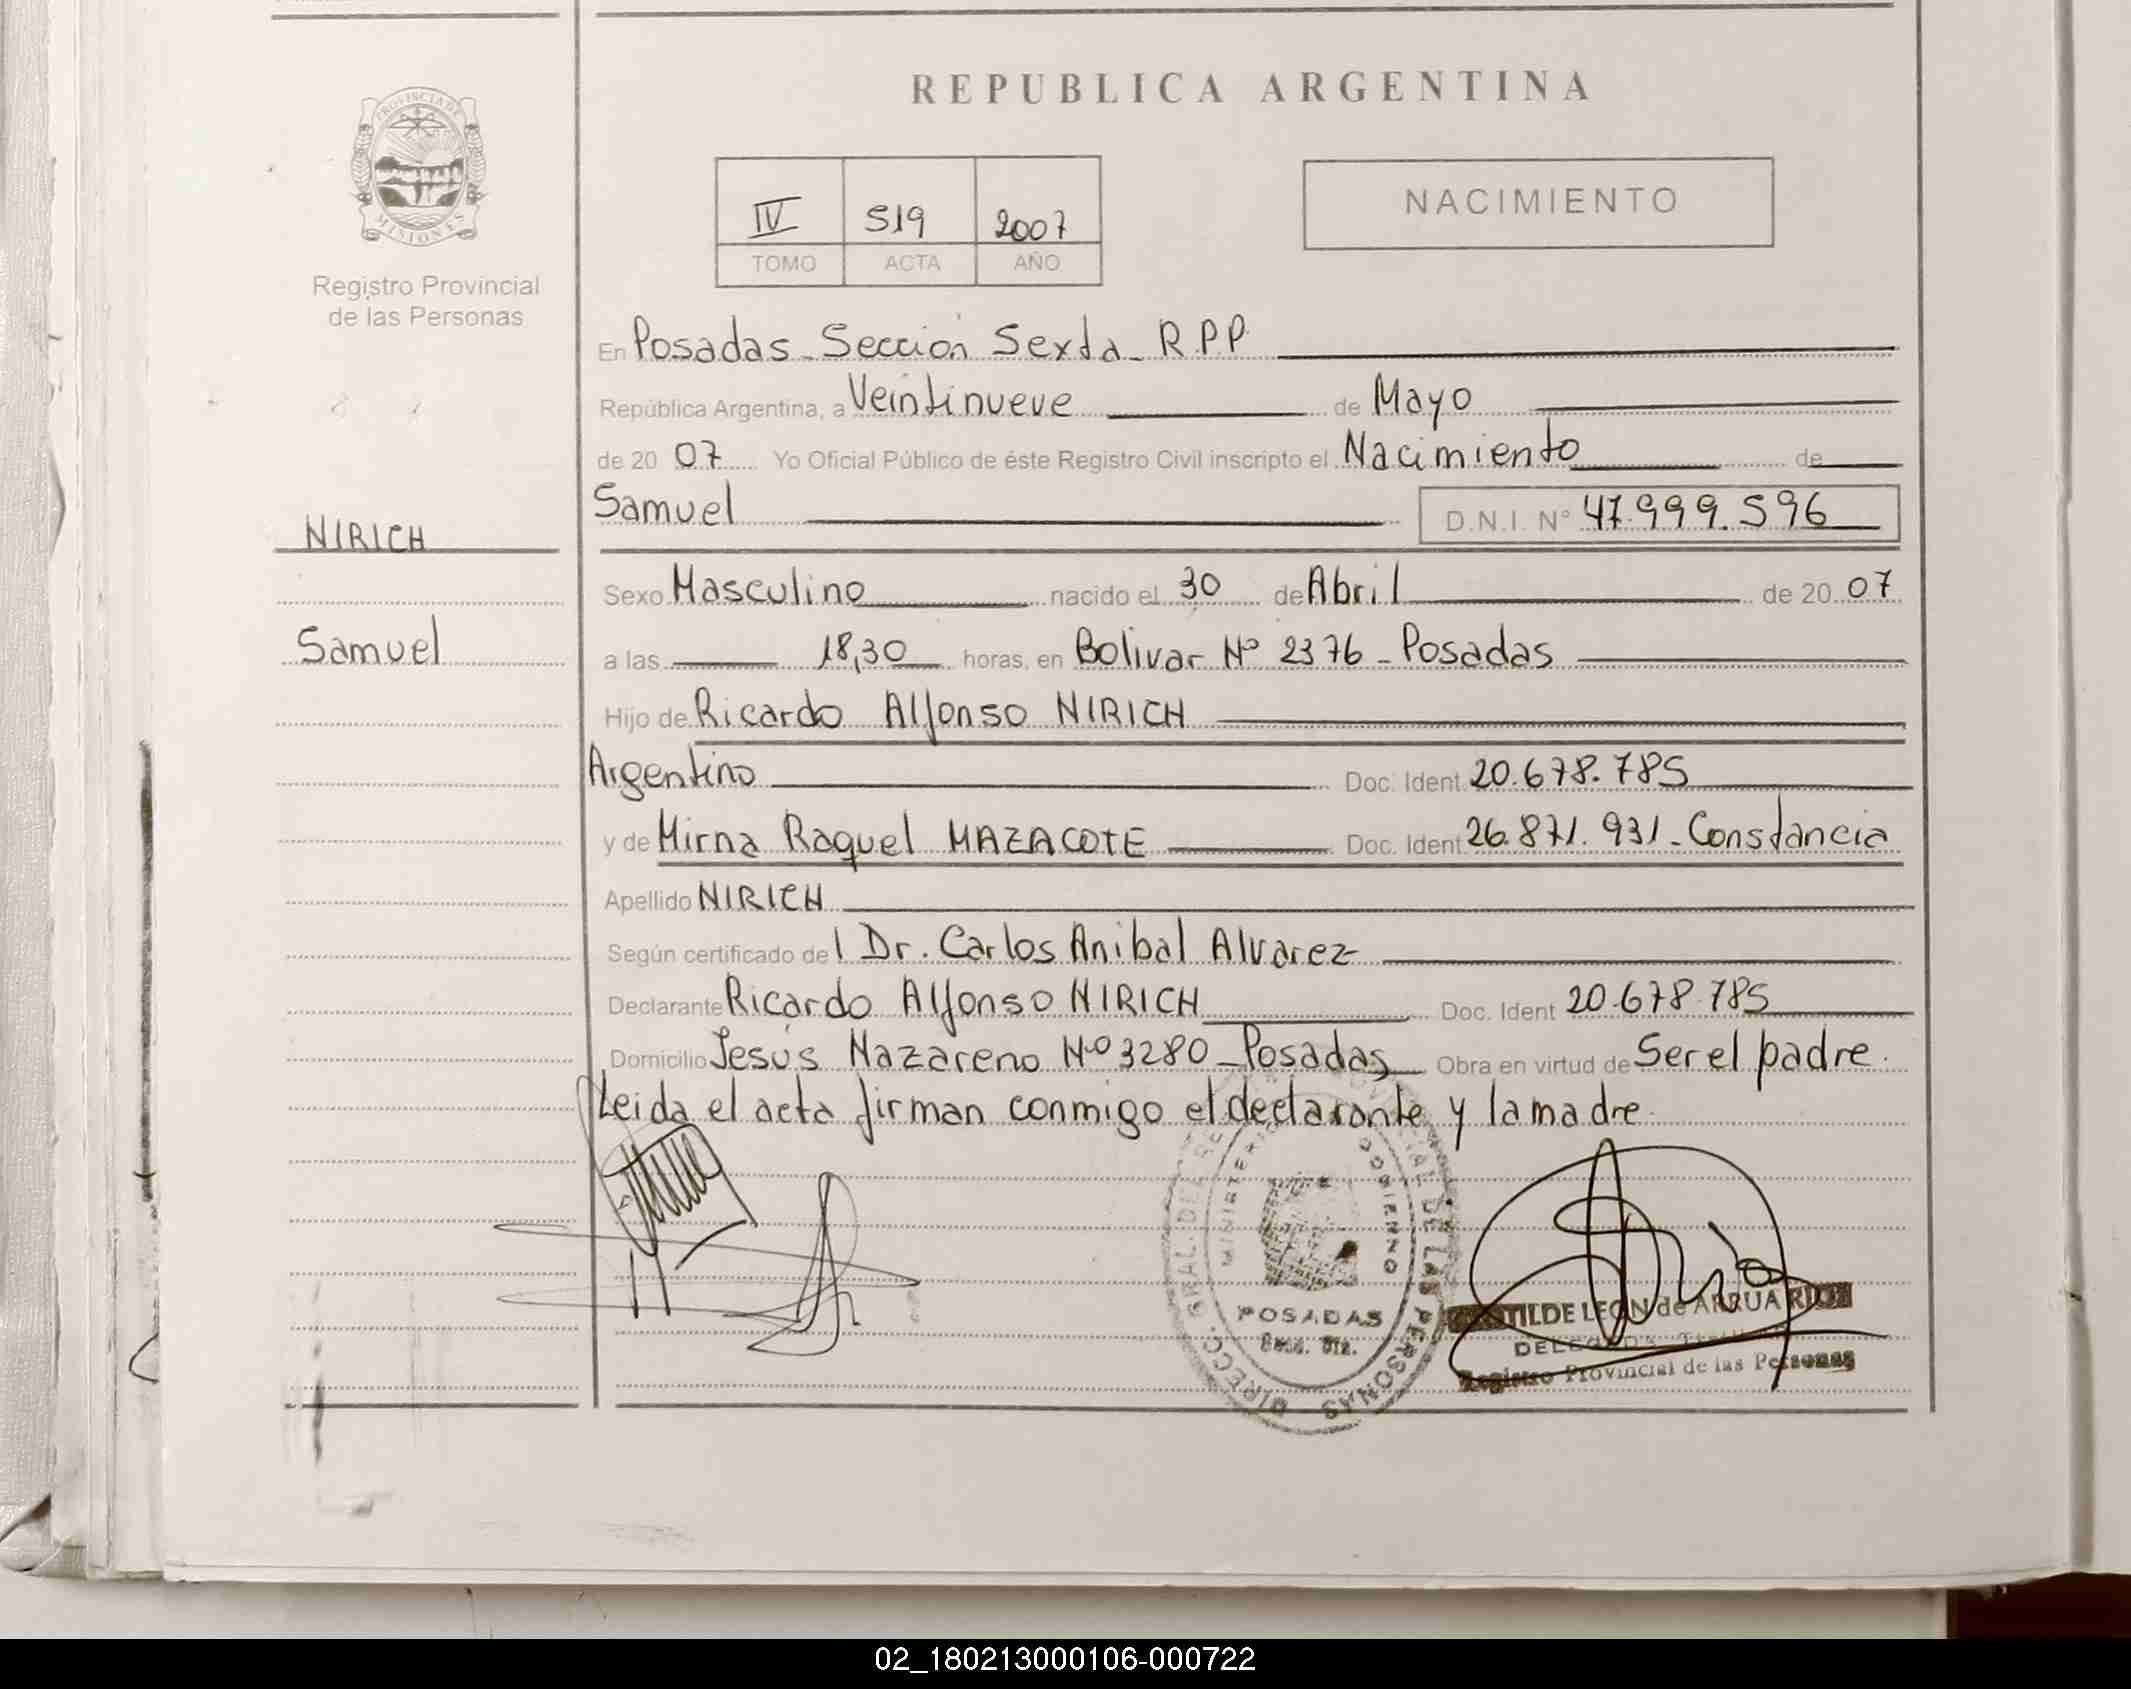 REPUBLICA ARGENTINA
PROVINCIA DE
MISIONES
Registro Provincial
de las Personas
IV 519 2007
TOMO ACTA AÑO
NACIMIENTO
En Posadas - Sección Sexta - R.P.P.
República Argentina, a Veintinueve de Mayo
de 20 07 Yo Oficial Público de éste Registro Civil inscripto el Nacimiento de
Samuel D.N.I. Nº 47.999.596
NIRICH
Samuel
Sexo Masculino nacido el 30 de Abril de 20 07
a las 18,30 horas, en Bolivar Nº 2376 - Posadas
Hijo de Ricardo Alfonso NIRICH
Argentino Doc. Ident. 20.678.785
y de Mirna Raquel MAZACOTE Doc. Ident. 26.871.931 - Constancia
Apellido NIRICH
Según certificado de l Dr. Carlos Anibal Alvarez
Declarante Ricardo Alfonso NIRICH Doc. Ident 20.678.785
Domicilio Jesús Nazareno Nº 3280 - Posadas Obra en virtud de Ser el padre.
Leida el acta firman conmigo el declarante y la madre.
DIRECC. GRAL. DEL DE LAS PERSONAS
MINISTERIO GOBIERNO
POSADAS
Secc. 6ta.
LEON de ARRUA RIOS
Registro Provincial de las Personas
02_180213000106-000722